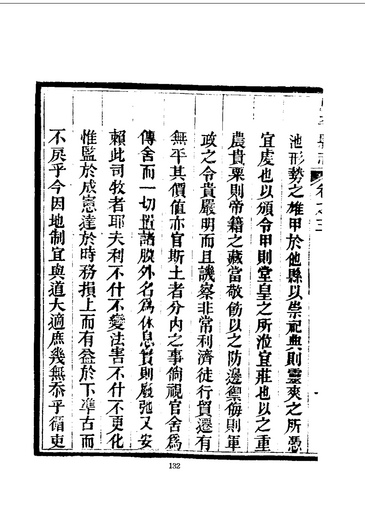 池形勢之雄甲於他縣以崇祀典則靈爽之所憑
宜虔也以頒令甲則堂皇之所涖宜莊也以之重
農貴粟則帝籍之藏當敬飭以之防邊禦侮則軍
政之令貴嚴明而且譏察非常利濟徒行貿遷有
無平其價值亦官斯土者分內之事倘視官舍為
傳舍而一切置諸股外名為休息實則廢弛又安
賴此司牧者耶夫利不什不變法害不什不更化
惟監於成憲達於時務損上而有益於下準古而
不戾乎今因地制宜與道大適庶幾無忝乎循吏
132